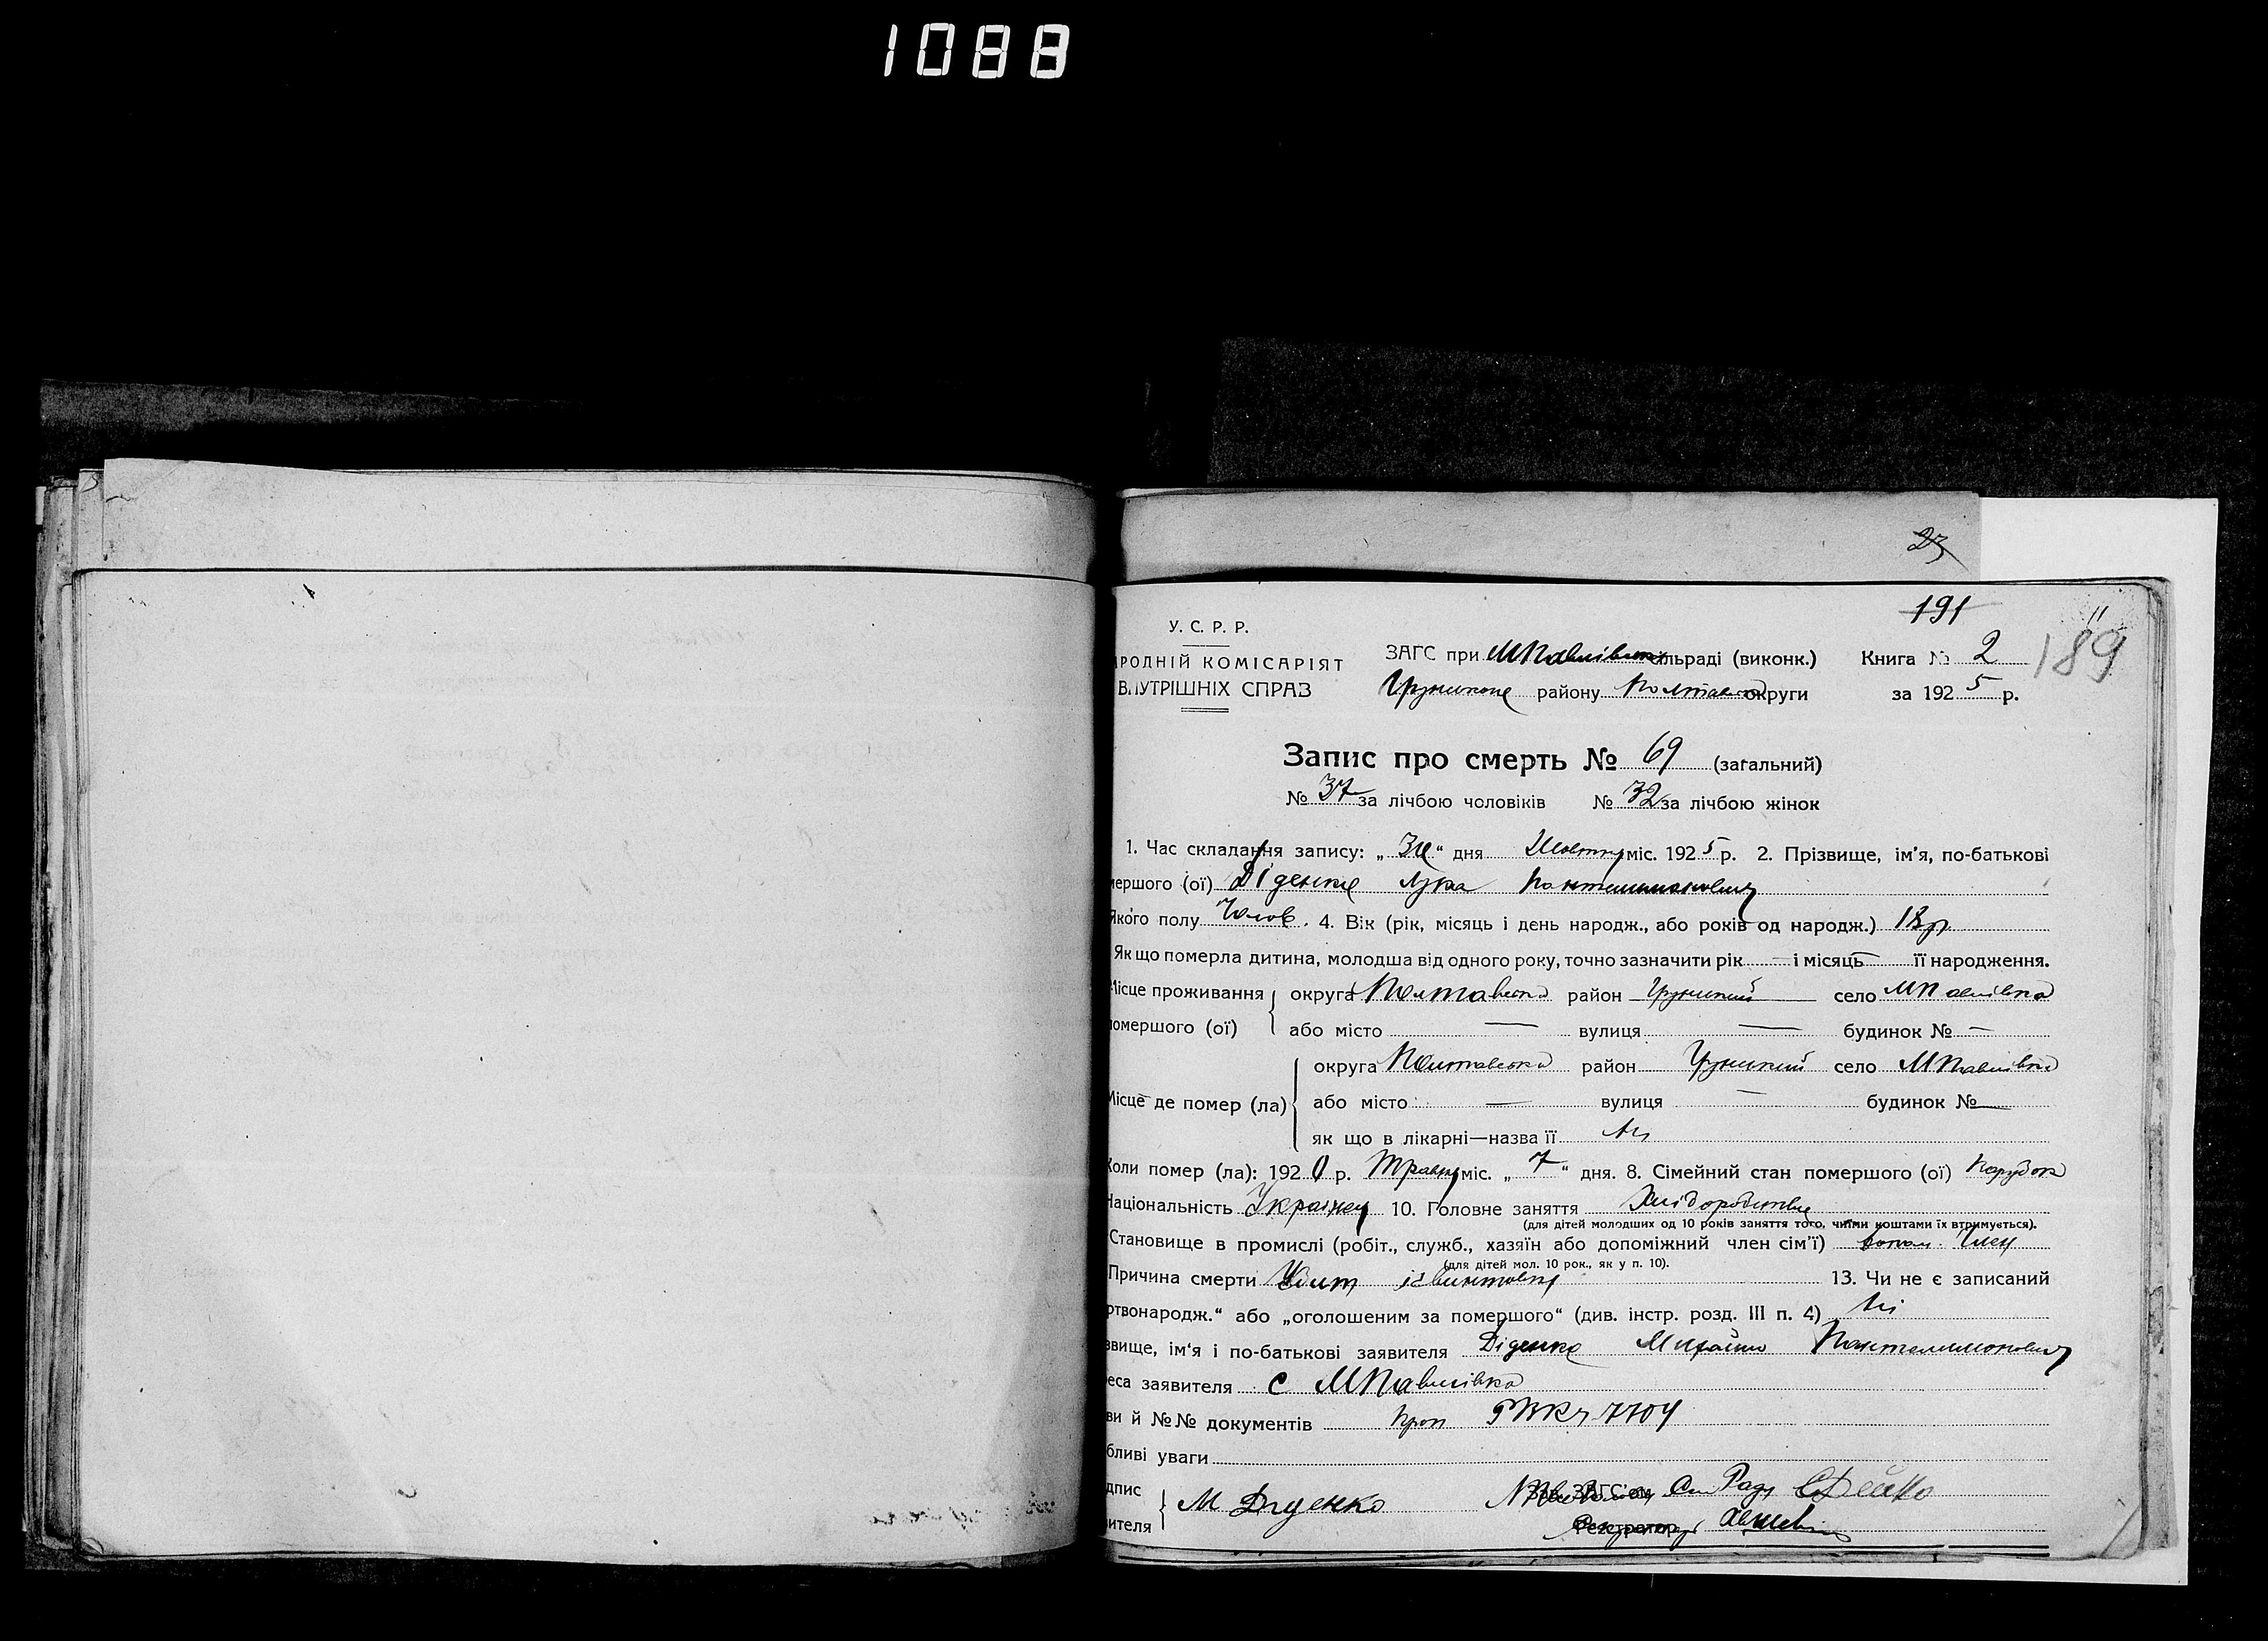 1088
23
191
189
У. С. Р. Р.
РОДНІЙ КОМІСАРІЯТ
ВНУТРІШНІХ СПРАВ
ЗАГС при МПавлівській сільраді (виконк.) Книга № 2
району Полтавської округи за 1925 р.
Запис про смерть № 69 (загальний)
№ 37 за лічбою чоловіків № 32 за лічбою жінок
1. Час складання запису: „ “ дня Жовтня міс. 1925 р. 2. Прізвище, ім'я, по-батькові
мершого (ої) Діденко Лука Пантелимонович
Якого полу Чолов. 4. Вік (рік, місяць і день народж., або років од народж.) 18 р.
Як що померла дитина, молодша від одного року, точно зазначити рік — і місяць — її народження.
Місце проживання помершого (ої)
округа Полтавська район Грунський село МПавлівка
або місто — вулиця — будинок № —
Місце де помер (ла)
округа Полтавська район Грунський село МПавлівка
або місто — вулиця — будинок № —
як що в лікарні—назва її Ні
Коли помер (ла): 1920 р. Травня міс. „7“ дня. 8. Сімейний стан помершого (ої) Парубок
Національність Українец 10. Головне заняття Хліборобство
(для дітей молодших од 10 років заняття того, чиїми коштами їх втримується).
Становище в промислі (робіт., служб., хазяїн або допоміжний член сім'ї) допом. Член
(для дітей мол. 10 рок., як у п. 10).
Причина смерти Убит із винтовки 13. Чи не є записаний
ртвонародж.“ або „оголошеним за помершого“ (див. інстр. розд. III п. 4) Ні
звище, ім'я і по-батькові заявителя Діденко Михайло Пантелимонович
еса заявителя с МПавлівка
ви й №№ документів РВК 7704
бливі уваги
дпис
ителя
М Діденко
Зав. ЗАГС'ом Сіл Ради
Реєстратор